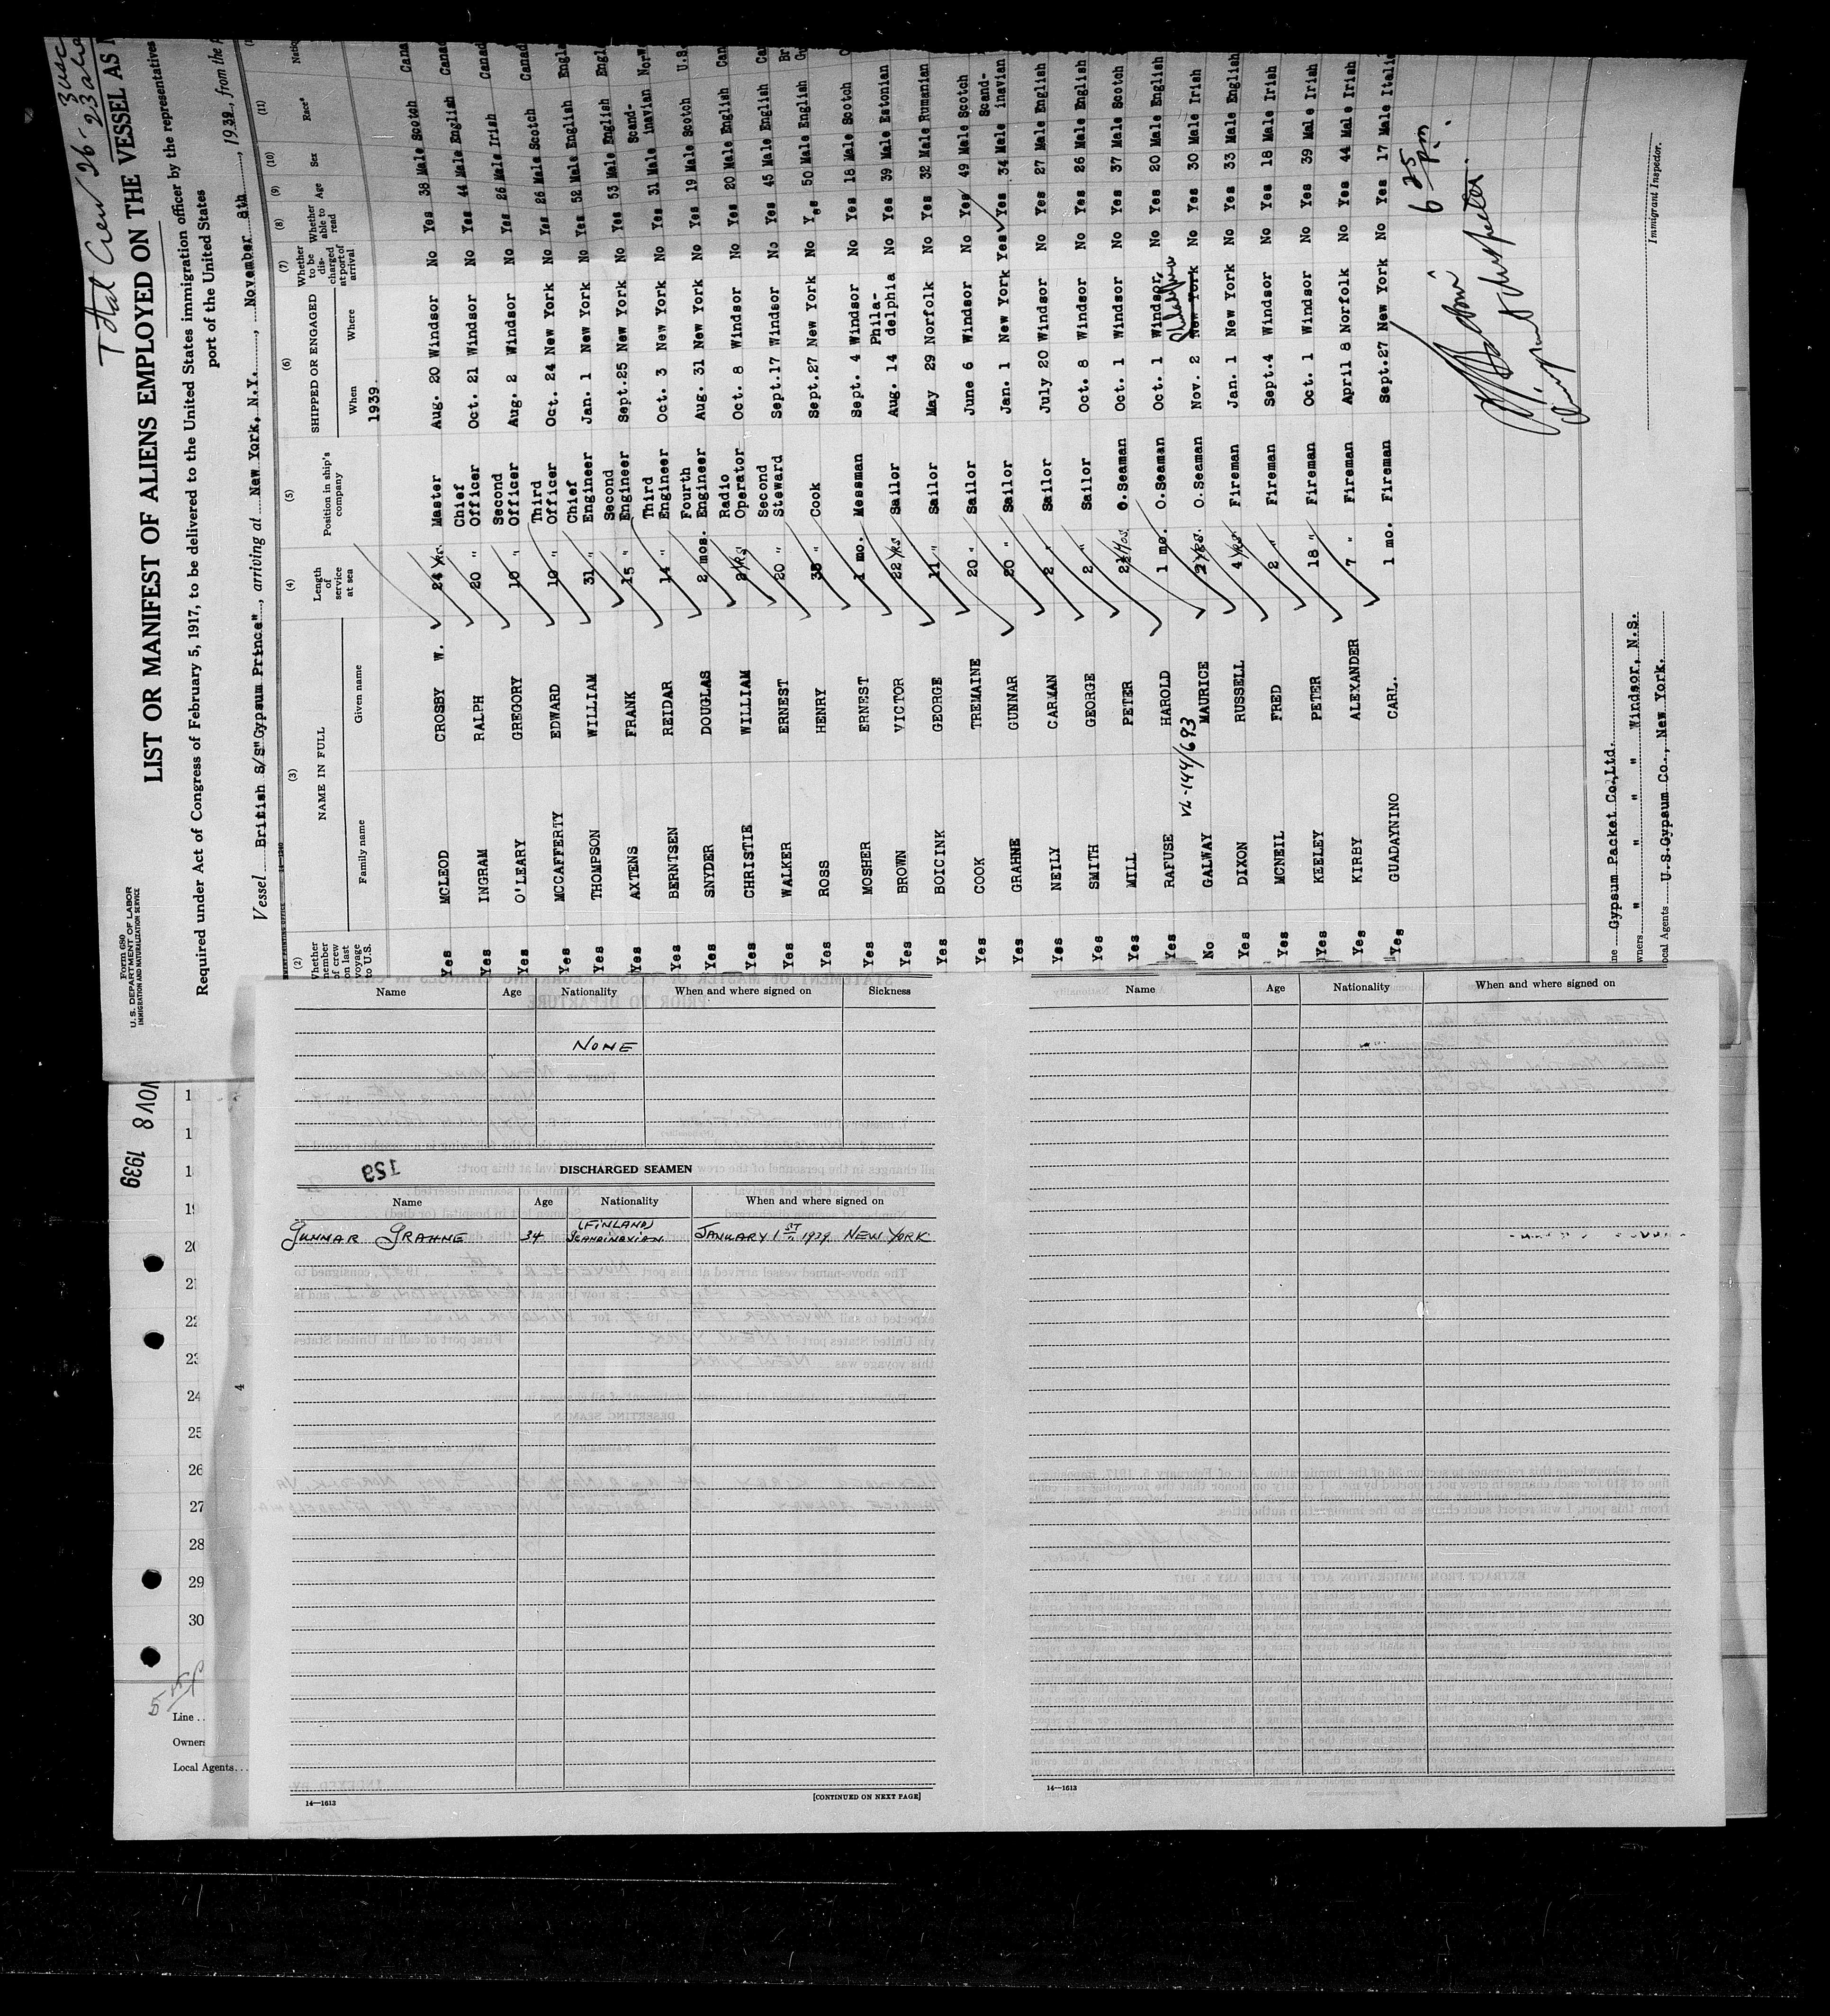 Total Crew 26 - 3 usc
23 alie
Form 680
U. S. DEPARTMENT OF LABOR
IMMIGRATION AND NATURALIZATION SERVICE
LIST OR MANIFEST OF ALIENS EMPLOYED ON THE VESSEL AS
Required under Act of Congress of February 5, 1917, to be delivered to the United States immigration officer by the representatives
port of the United States
Vessel British S/S"Gypsum Prince", arriving at New York, N.Y., November 8th, 1939, from the
(2) (3) (4) (5) (6) (7) (8) (9) (10) (11)
Whether member of crew on last voyage to U.S. NAME IN FULL Family name Given name Length of service at sea Position in ship's company SHIPPED OR ENGAGED When Where Whether to be discharged at port of arrival Whether able to read Age Sex Race*
1939.
Yes MCLEOD CROSBY W. 24 yrs. Master Aug. 20 Windsor No Yes 38 Male Scotch Cana
Yes INGRAM RALPH 20 " Chief Officer Oct. 21 Windsor No Yes 44 Male English Canad
Yes O'LEARY GREGORY 10 " Second Officer Aug. 2 Windsor No Yes 26 Male Irish Canad
Yes MCCAFFERTY EDWARD 10 " Third Officer Oct. 24 New York No Yes 26 Male Scotch Canad
Yes THOMPSON WILLIAM 31 " Chief Engineer Jan. 1 New York No Yes 52 Male English Engl
Yes AXTENS FRANK 15 " Second Engineer Sept.25 New York No Yes 53 Male English Engl
Yes BERNTSEN REIDAR 14 " Third Engineer Oct. 3 New York No Yes 31 Male Scand-inavian Norw
Yes SNYDER DOUGLAS 2 mos. Fourth Engineer Aug. 31 New York No Yes 19 Male Scotch U.S.
Yes CHRISTIE WILLIAM 2 yrs Radio Operator Oct. 8 Windsor No Yes 20 Male English Can
Yes WALKER ERNEST 20 " Second Steward Sept.17 Windsor No Yes 45 Male English Ca
Yes ROSS HENRY 35 " Cook Sept.27 New York No Yes 50 Male English Br Gu
Yes MOSHER ERNEST 1 mo. Messman Sept. 4 Windsor No Yes 18 Male Scotch C
Yes BROWN VICTOR 22 yrs Sailor Aug. 14 Phila-delphia No Yes 39 Male Estonian
Yes BOICINK GEORGE 11 " Sailor May 29 Norfolk No Yes 32 Male Rumanian
Yes COOK TREMAINE 20 " Sailor June 6 Windsor No Yes 49 Male Scotch
Yes GRAHNE GUNNAR 20 " Sailor Jan. 1 New York Yes Yes 34 Male Scand-inavian
Yes NEILY CARMAN 2 " Sailor July 20 Windsor No Yes 27 Male English
Yes SMITH GEORGE 2 " Sailor Oct. 8 Windsor No Yes 26 Male English
Yes MILL PETER 2½ Mos O.Seaman Oct. 1 Windsor No Yes 37 Male Scotch
Yes RAFUSE HAROLD 1 mo. O.Seaman Oct. 1 Windsor No Yes 20 Male English
VL-144/693 Philadelphia
No GALWAY MAURICE 2 yrs. O.Seaman Nov. 2 New York No Yes 30 Male Irish
Yes DIXON RUSSELL 4 yrs Fireman Jan. 1 New York No Yes 33 Male English
Yes MCNEIL FRED 2 " Fireman Sept.4 Windsor No Yes 18 Male Irish
Yes KEELEY PETER 18 " Fireman Oct. 1 Windsor No Yes 39 Male Irish
Yes KIRBY ALEXANDER 7 " Fireman April 8 Norfolk No Yes 44 Male Irish
Yes GUADAYNINO CARL. 1 mo. Fireman Sept.27 New York No Yes 17 Male Itali
6 25 p.m.
Immigrant Inspector.
ne Gypsum Packet Co.,Ltd.
wners " " " " Windsor, N.S.
ocal Agents U.S.Gypsum Co., New York.
NOV 8 1939
Name Age Nationality When and where signed on Sickness
NONE
123
DISCHARGED SEAMEN
Name Age Nationality When and where signed on
GUNNAR GRAHNE 34 (FINLAND) SCANDINAVIAN JANUARY 1ST, 1939. NEW YORK
14—1613 [CONTINUED ON NEXT PAGE]
Name Age Nationality When and where signed on
14—1613
19
20
21
22
23
24
25
26
27
28
29
30
4
Line
Owners
Local Agents